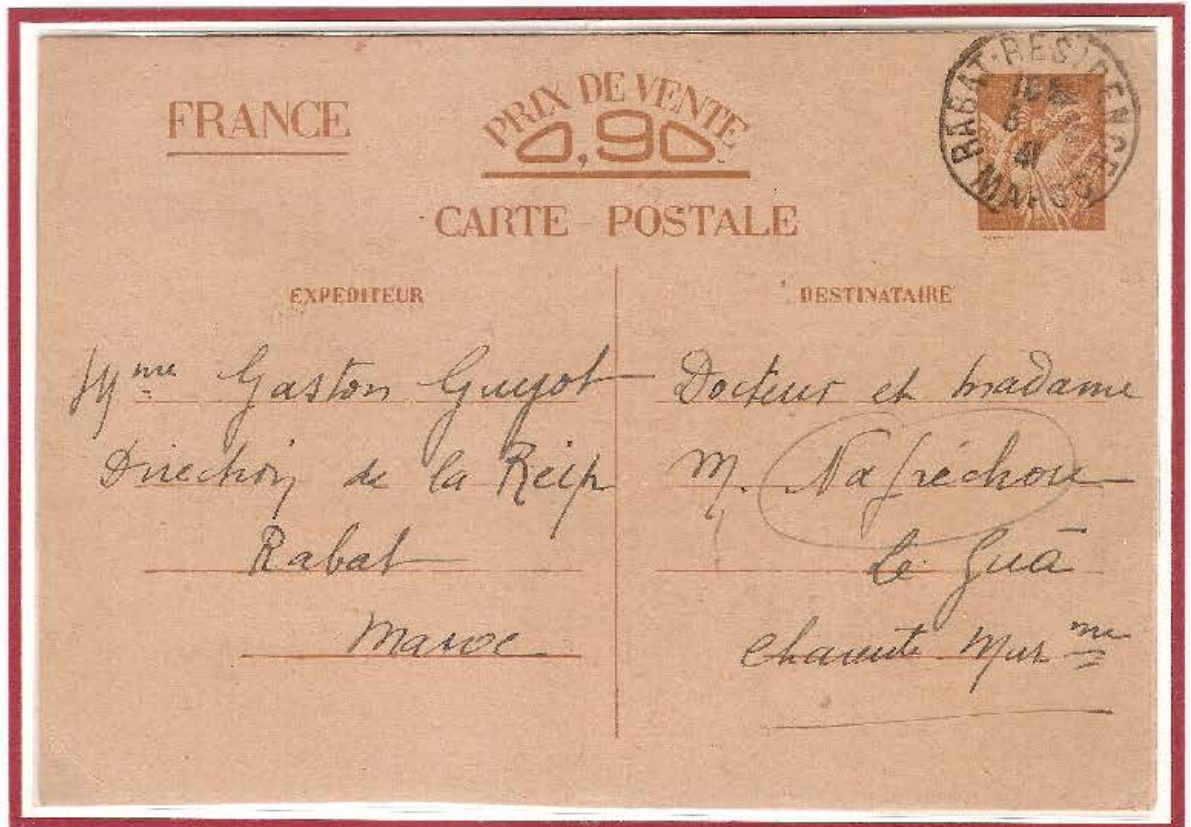 FRANCE
PRIX DE VENTE
0,90
CARTE - POSTALE
RABAT-RESIDENCE
41
MAROC
EXPEDITEUR
Mme Gaston Guyot
Direction de la
Rabat
Maroc
DESTINATAIRE
Docteur et madame
M.
Le Guâ
Charente Mar me